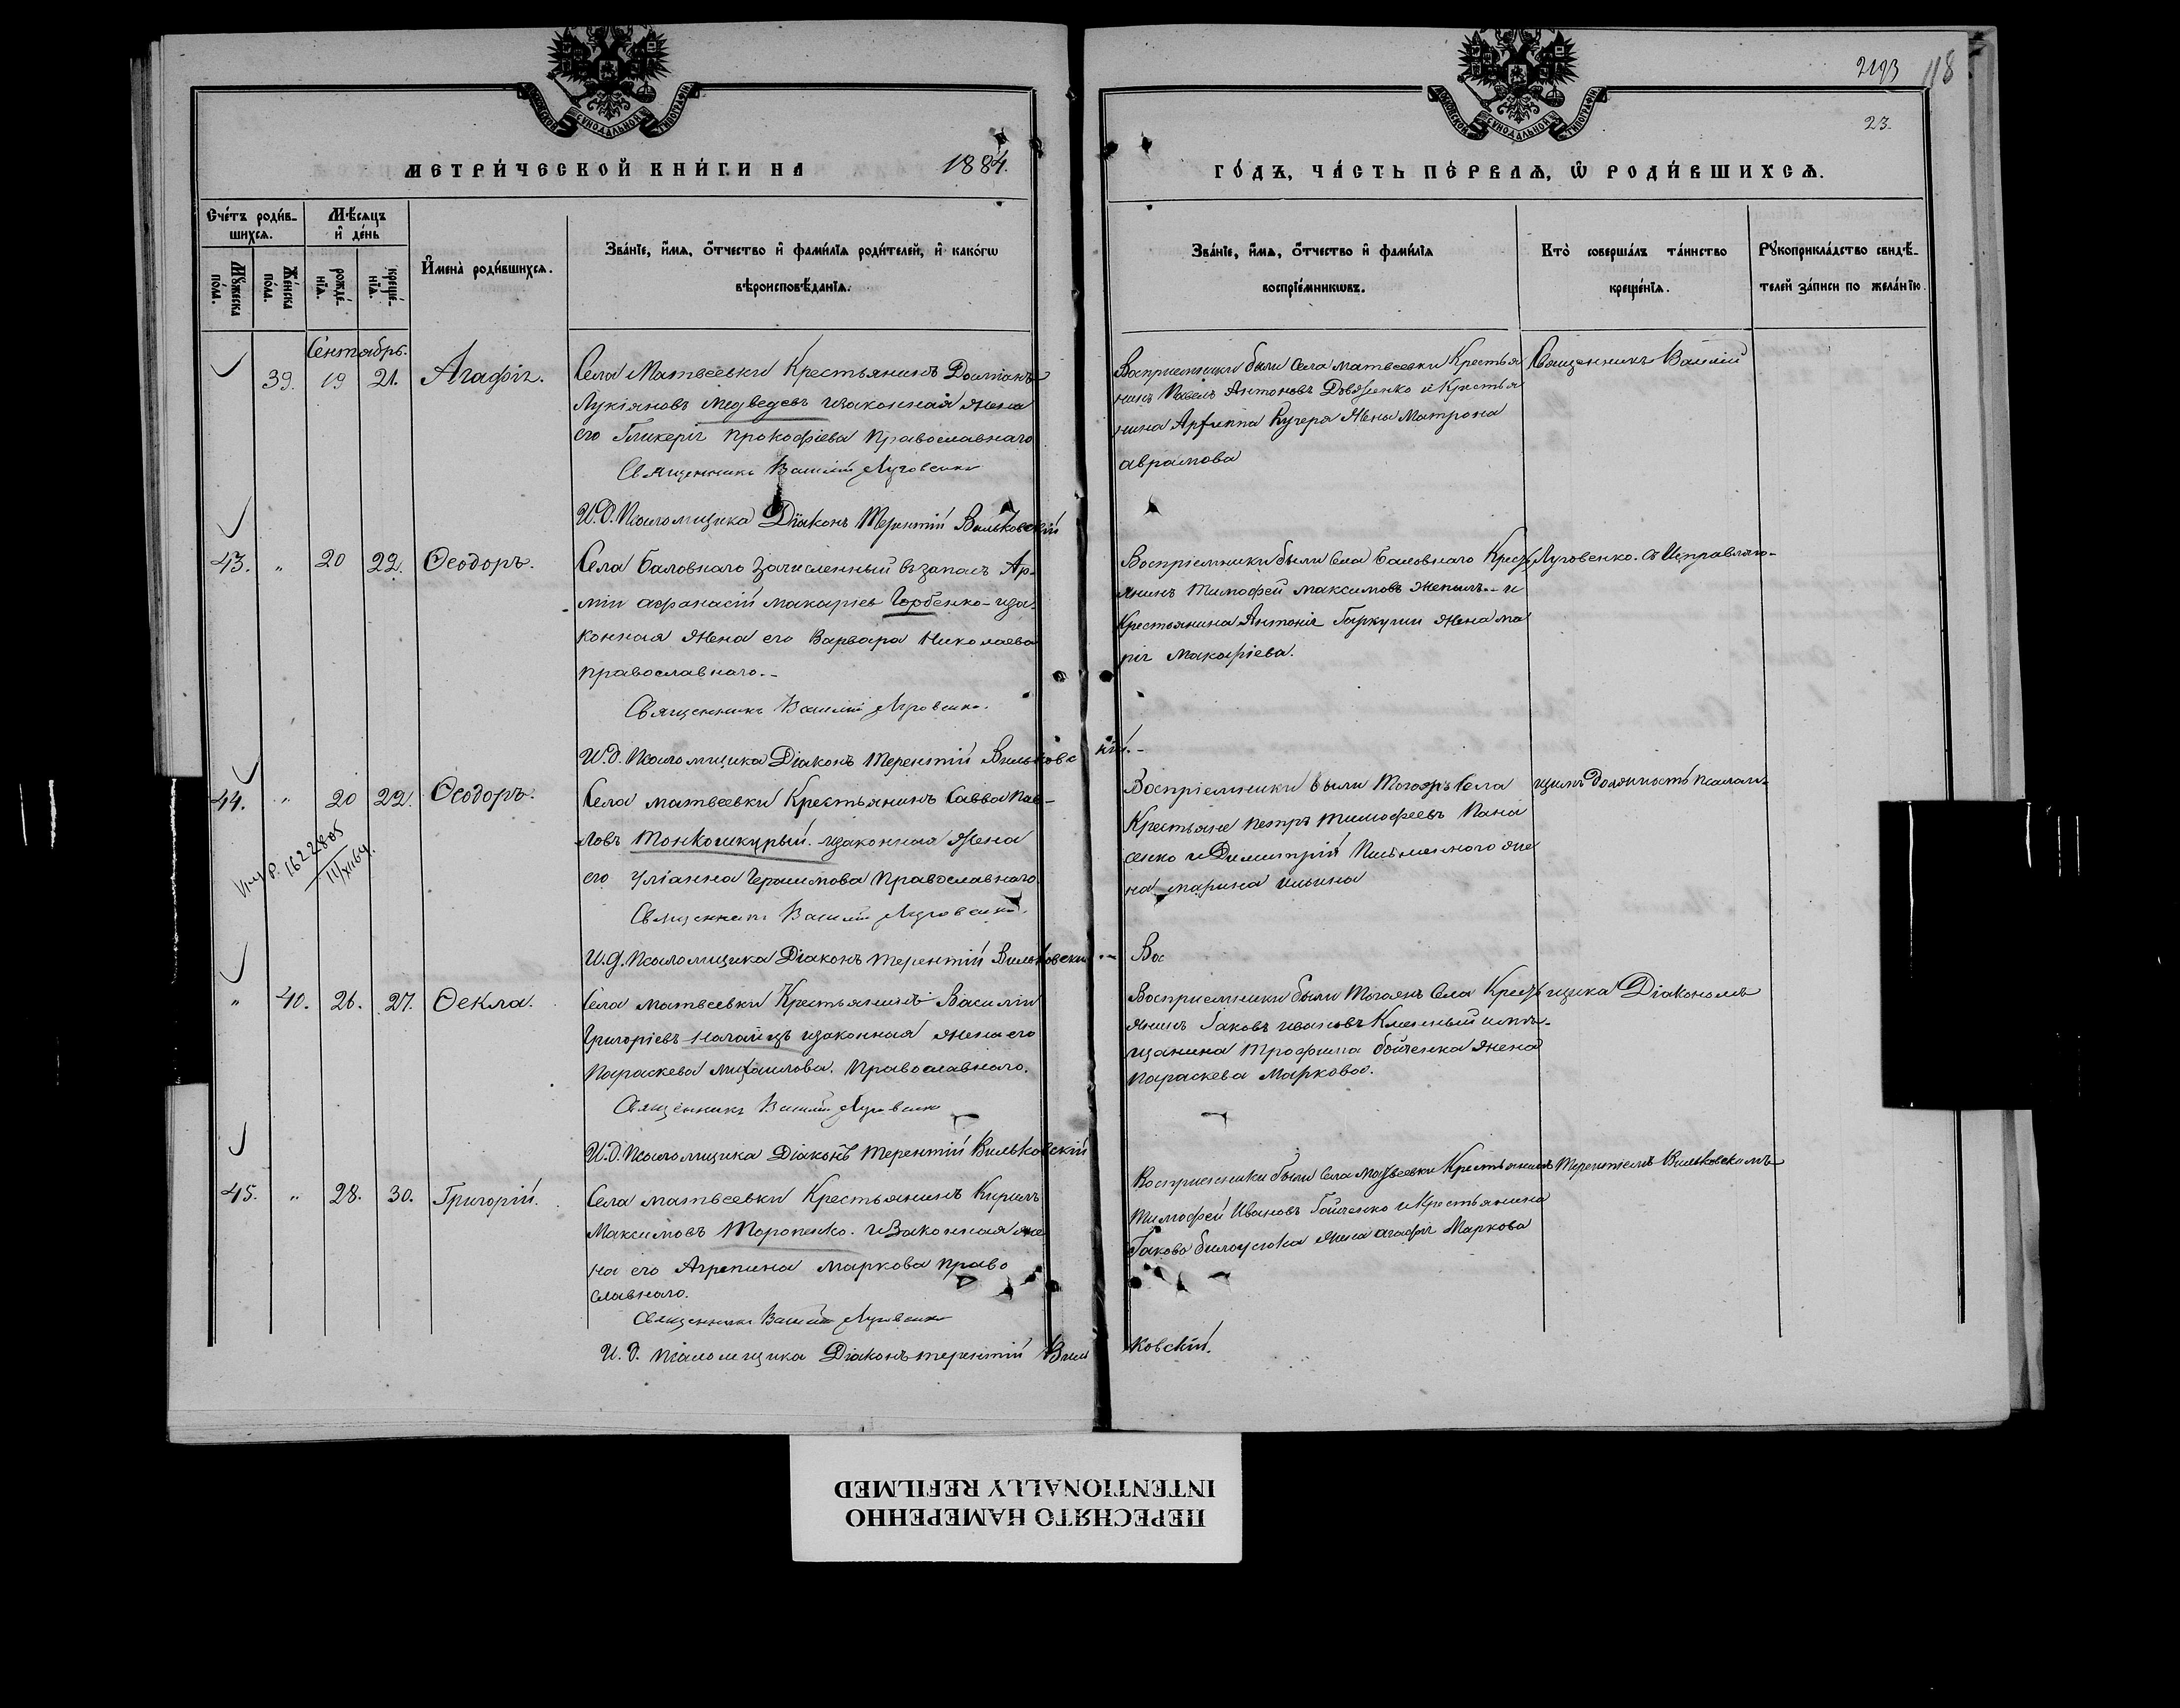 2193 118
23.
МОСКОВСКОЙ СѴНОДАЛЬНОЙ ТИПОГРАФІИ
МОСКОВСКОЙ СѴНОДАЛЬНОЙ ТИПОГРАФІИ
МЕТРИ́ЧЕСКОЙ КНИ́ГИ НА 1884. ГО́ДЪ, ЧА́СТЬ ПЕ́РВАѦ, Ѡ РОДИ́ВШИХСѦ.
Сче́тъ роди́в-
шихсѧ.
Мꙋ́жеска по́ла.
Же́нска по́ла.
Мѣ́сѧцъ
и де́нь
рожде́-нїѧ.
креще́-нїѧ.
И҆мена̀ роди́вшихсѧ.
Зва́нїе, и҆́мѧ, ѻ҆́тчество и҆ фами́лїѧ роди́телей, и҆ како́гѡ
вѣроисповѣ́данїѧ.
Зва́нїе, и҆́мѧ, ѻ҆́тчество и҆ фами́лїѧ
воспрїе́мникѡвъ.
Кто̀ соверша́лъ та́инство
креще́нїѧ.
Рꙋкоприкла́дство свидѣ́-
телей за́писи по жела́нїю.
Сентябрь.
39. 19 21. Агафія.
Села Матвеевки Крестьянинъ Доміанъ
Лукіяновъ Медведевъ изаконная жена
его Гликерія Прокофіева Православнаго
Священникъ Василій Луговенко
И.д. Псаломщика Діаконъ Терентій Вильковскій
Восприемники были Села Матвеевки Крестья
нинъ Павелъ Антоновъ и Крестья
нина Архиппа Кучера Жена Матрона
аврамова
Священникъ Василій
43. " 20 22. Ѳеодоръ.
Села Баловнаго Зачисленный въ запасъ Ар-
міи афанасій макаріев Горбенко- иза-
конная жена его Варвара Николаева
православнаго.-
Священникъ Василій Луговенко.
И.д. Псаломщика Діаконъ Терентій Вильковс кій.-
Воспріемники были Села Баловнаго Кресть
янинъ Тимофей Максимовъ -и
Крестьянина Антонія Гаркуши жена ма
рія Макофіева.
Луговенко. съ Исправляю-
44. " 20 22. Ѳеодоръ.
162280
III/XII 64.
Села матвеевки Крестьянинъ Савва Пав-
ловъ Тонкошкурый. изаконная жена
его Уліанна Герасимова Православнаго
Священникъ Василій Луговенко.
И.д. Псаломщика Діаконъ Терентій Вильковскій.-
Воспріемники были Тогожъ Села
Крестьяне Петръ Тимофеевъ Пана
сенко и Димитрія Письменного же
на марина ильина
Вос
щимъ Должность Псалом-
" 40. 26. 27. Ѳекла.
Села матвеевки Крестьянинъ Василій
Григоріевъ Нагаецъ изаконная жена его
Параскева михаилова. Православнаго.
Священникъ Василій Луговенко
И.д. Псаломщика Діаконъ Терентій Вильковскій
Восприемники были Тогожъ Села Кресть
янинъ Іаковъ ивановъ имѣ-
щанина Трофима бойченка жена
Параскева Маркова.
щика Діакономъ
45. " 28. 30. Григорій.
Села матвеевки Крестьянинъ Кирилъ
Максимовъ Торопенко. и Законная же
на его Агрепина маркова право
славнаго.
Священникъ Василій Луговенко
И.д. псаломщика Діаконъ терентій Виль ковскій.
Восприемники были Села Матвеевки Крестьянинъ
Тимофей Ивановъ Гайченко и Крестьянина
Іакова билоусюка жена агафія Маркова
Терентіемъ Вильковскимъ
ПЕРЕСНЯТО НАМЕРЕННО
INTENTIONALLY REFILMED